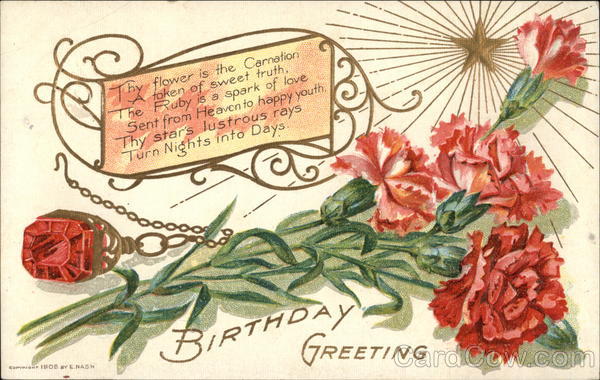 Thy flower is the Carnation
A token of sweet truth,
The Ruby is a spark of love
Sent from Heaven to happy youth,
Thy star's lustrous rays
Turn Nights into Days.
BIRTHDAY
GREETING
COPYRIGHT 1908 BY E. NASH
CardCow.com